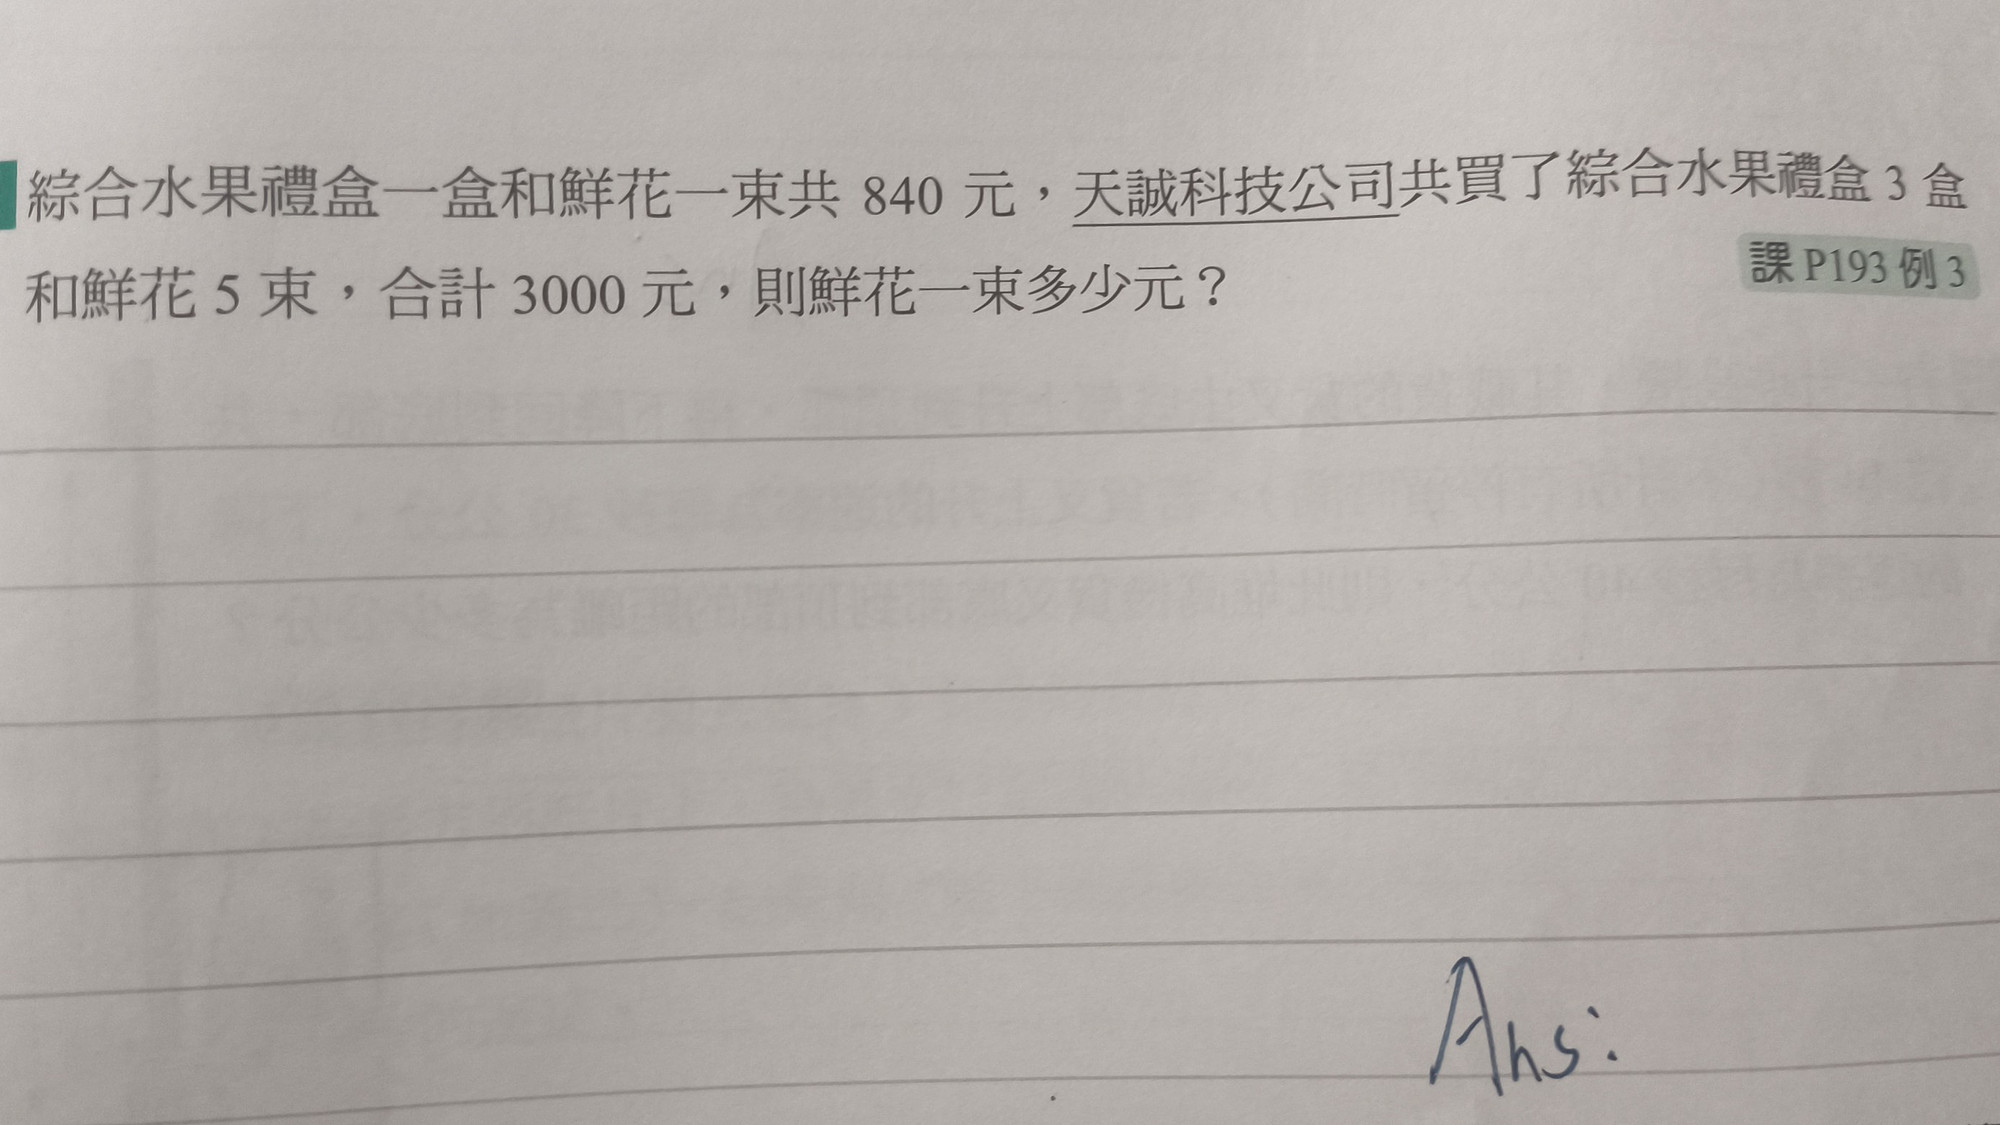 綜合水果禮盒一盒和鮮花一束共 840 元，天誠科技公司共買了綜合水果禮盒 3 盒
和鮮花 5 束，合計 3000 元，則鮮花一束多少元？
課 P193 例 3
Ans: